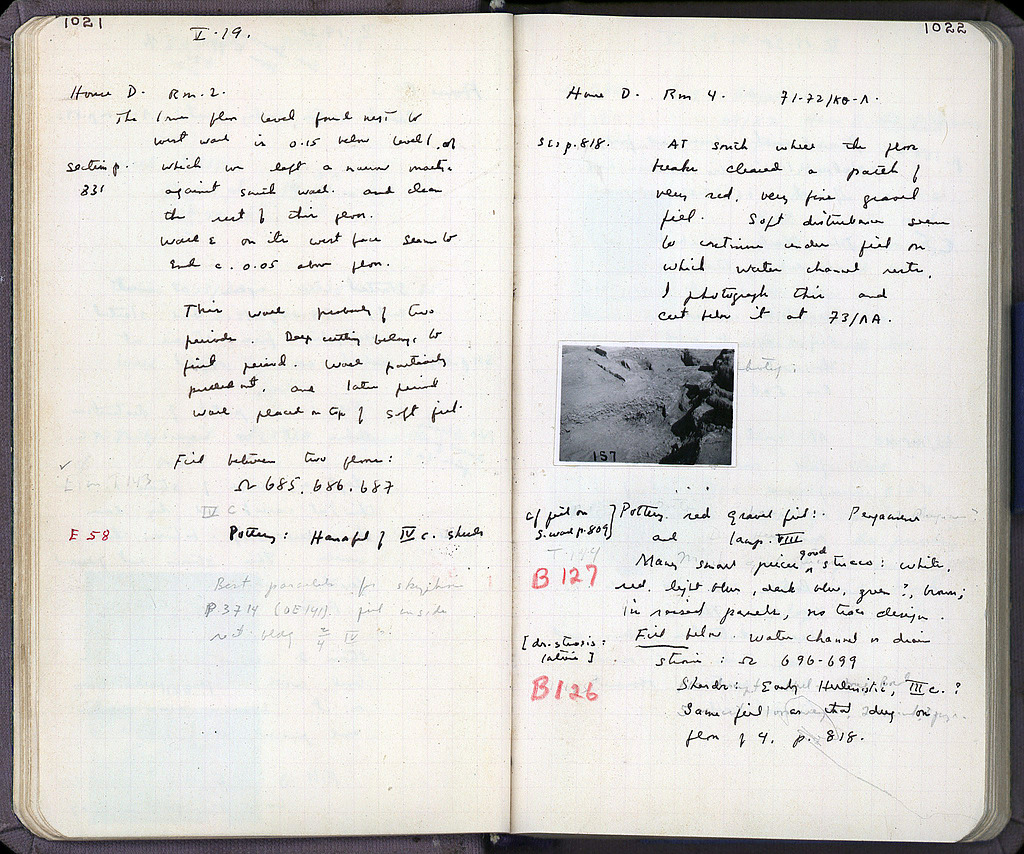 1021
V·19.
House D. Rm. 2.
The lower floor level found next to
west wall is 0.15 below level 1, of
section p. which we left a narrow
831 against south wall. and clean
the rest of this floor.
Wall E on its west face seems to
end c. 0.05 above floor.
This wall probably of two
periods. Deep cutting belongs to
first period. Wall partially
pulled out, and later period
wall placed on top of soft fill.
Fill between two floors:
Ω 685, 686, 687
IV c
E 58 Pottery: Handful of IV c. sherds
Best parallels for skyphoi
P 3714 (OE 141). fill inside
bldg
1022
House D. Rm 4. 71-72/ΚΘ-Λ.
See p. 818. At south where the floor
breaks cleared a patch of
very red, very fine gravel
fill. Soft disturbance seems
to continue under fill on
which water channel rests.
I photograph this and
cut below it at 73/ΛΑ.
157
cf fill on Pottery, red gravel fill: Pergamene
S. wall p. 809 and lamp. VIII
T 144
B 127 Many small pieces good stucco: white,
red, light blue, dark blue, green?, brown;
in raised panels, no trace design.
[dr. strosis: Fill below water channel or drain
latria] strosis: Ω 696-699
B 126 Sherds: Early Hellenistic, III c.?
Same fill as that dug on
floor of 4, p. 818.